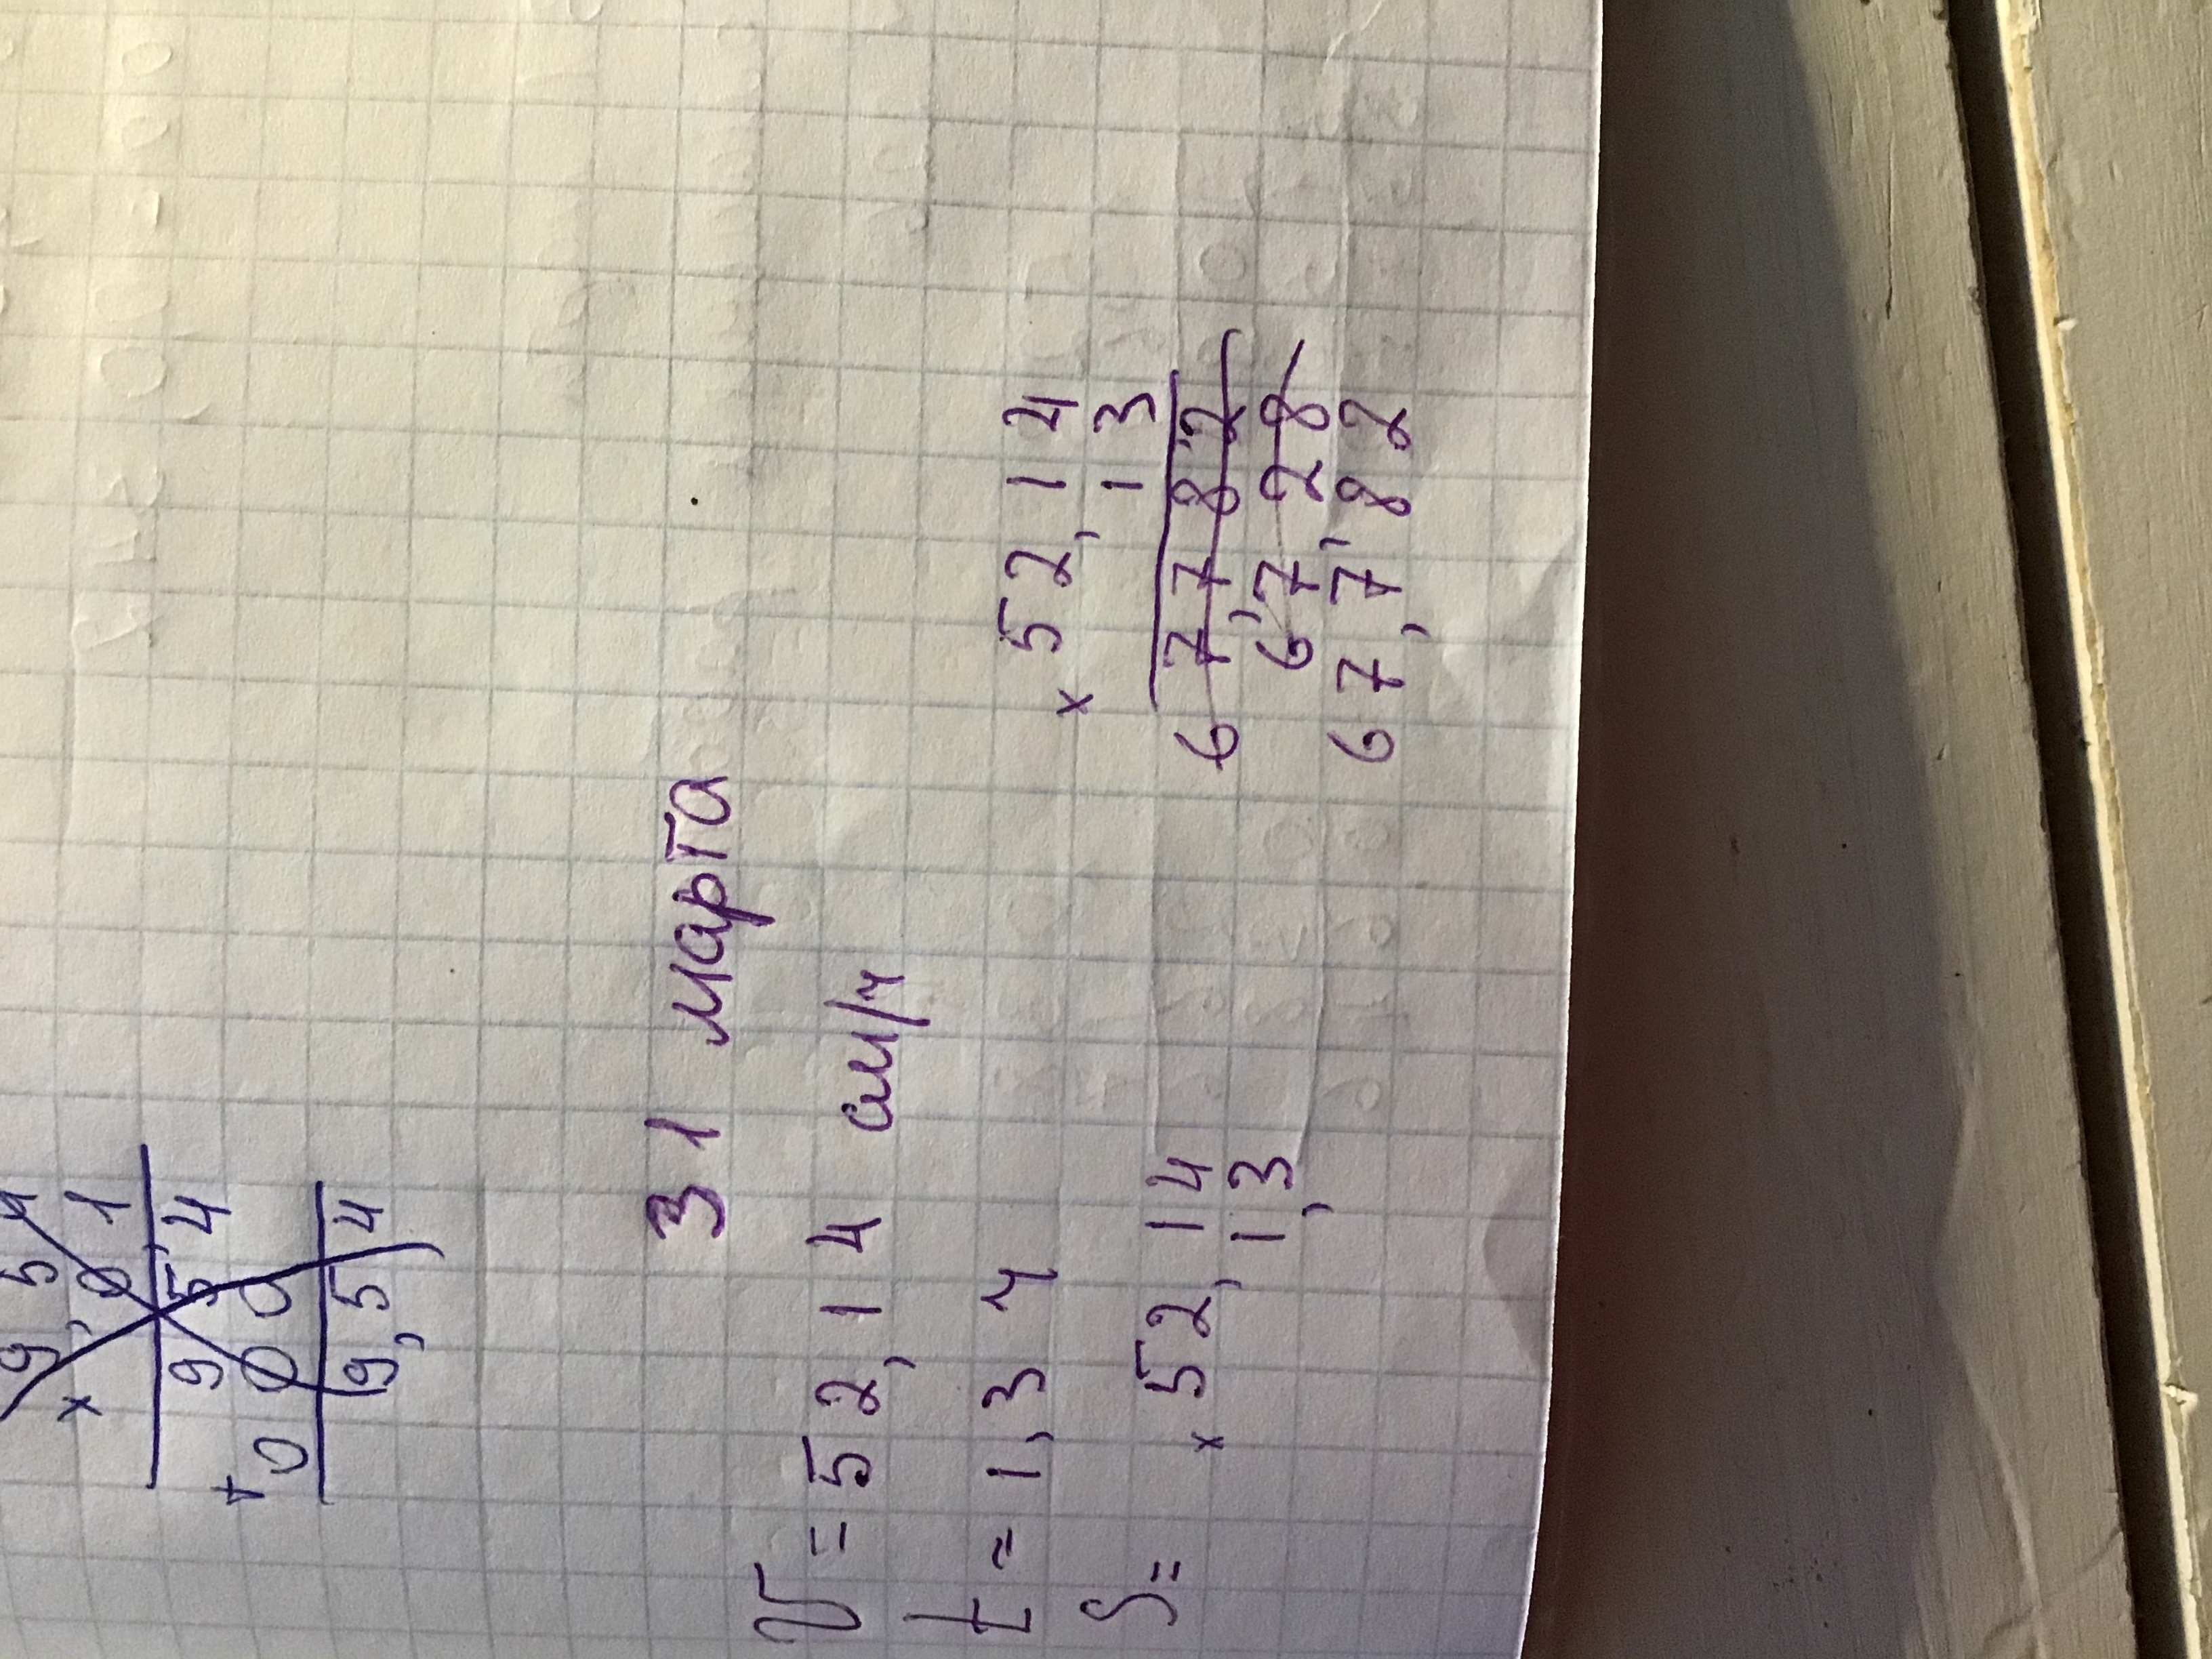 9,54
× 0,1
9 5 4
+ 0 0 0
9,5 4
31 марта
V = 52,14 см/ч
t = 1,3 ч
S = × 52,14
1,3
× 52,14
1 3
6 7 7 8 2
6,7 2 8
6 7,7 8 2